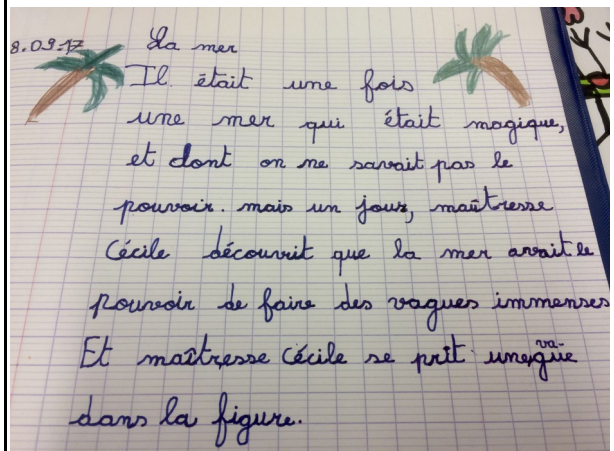 8.09.17 La mer
Il était une fois
une mer qui était magique,
et dont on ne savait pas le
pouvoir. mais un jour, maîtresse
Cécile découvrit que la mer avait le
pouvoir de faire des vagues immenses
Et maîtresse Cécile se prit une va-gue
dans la figure.